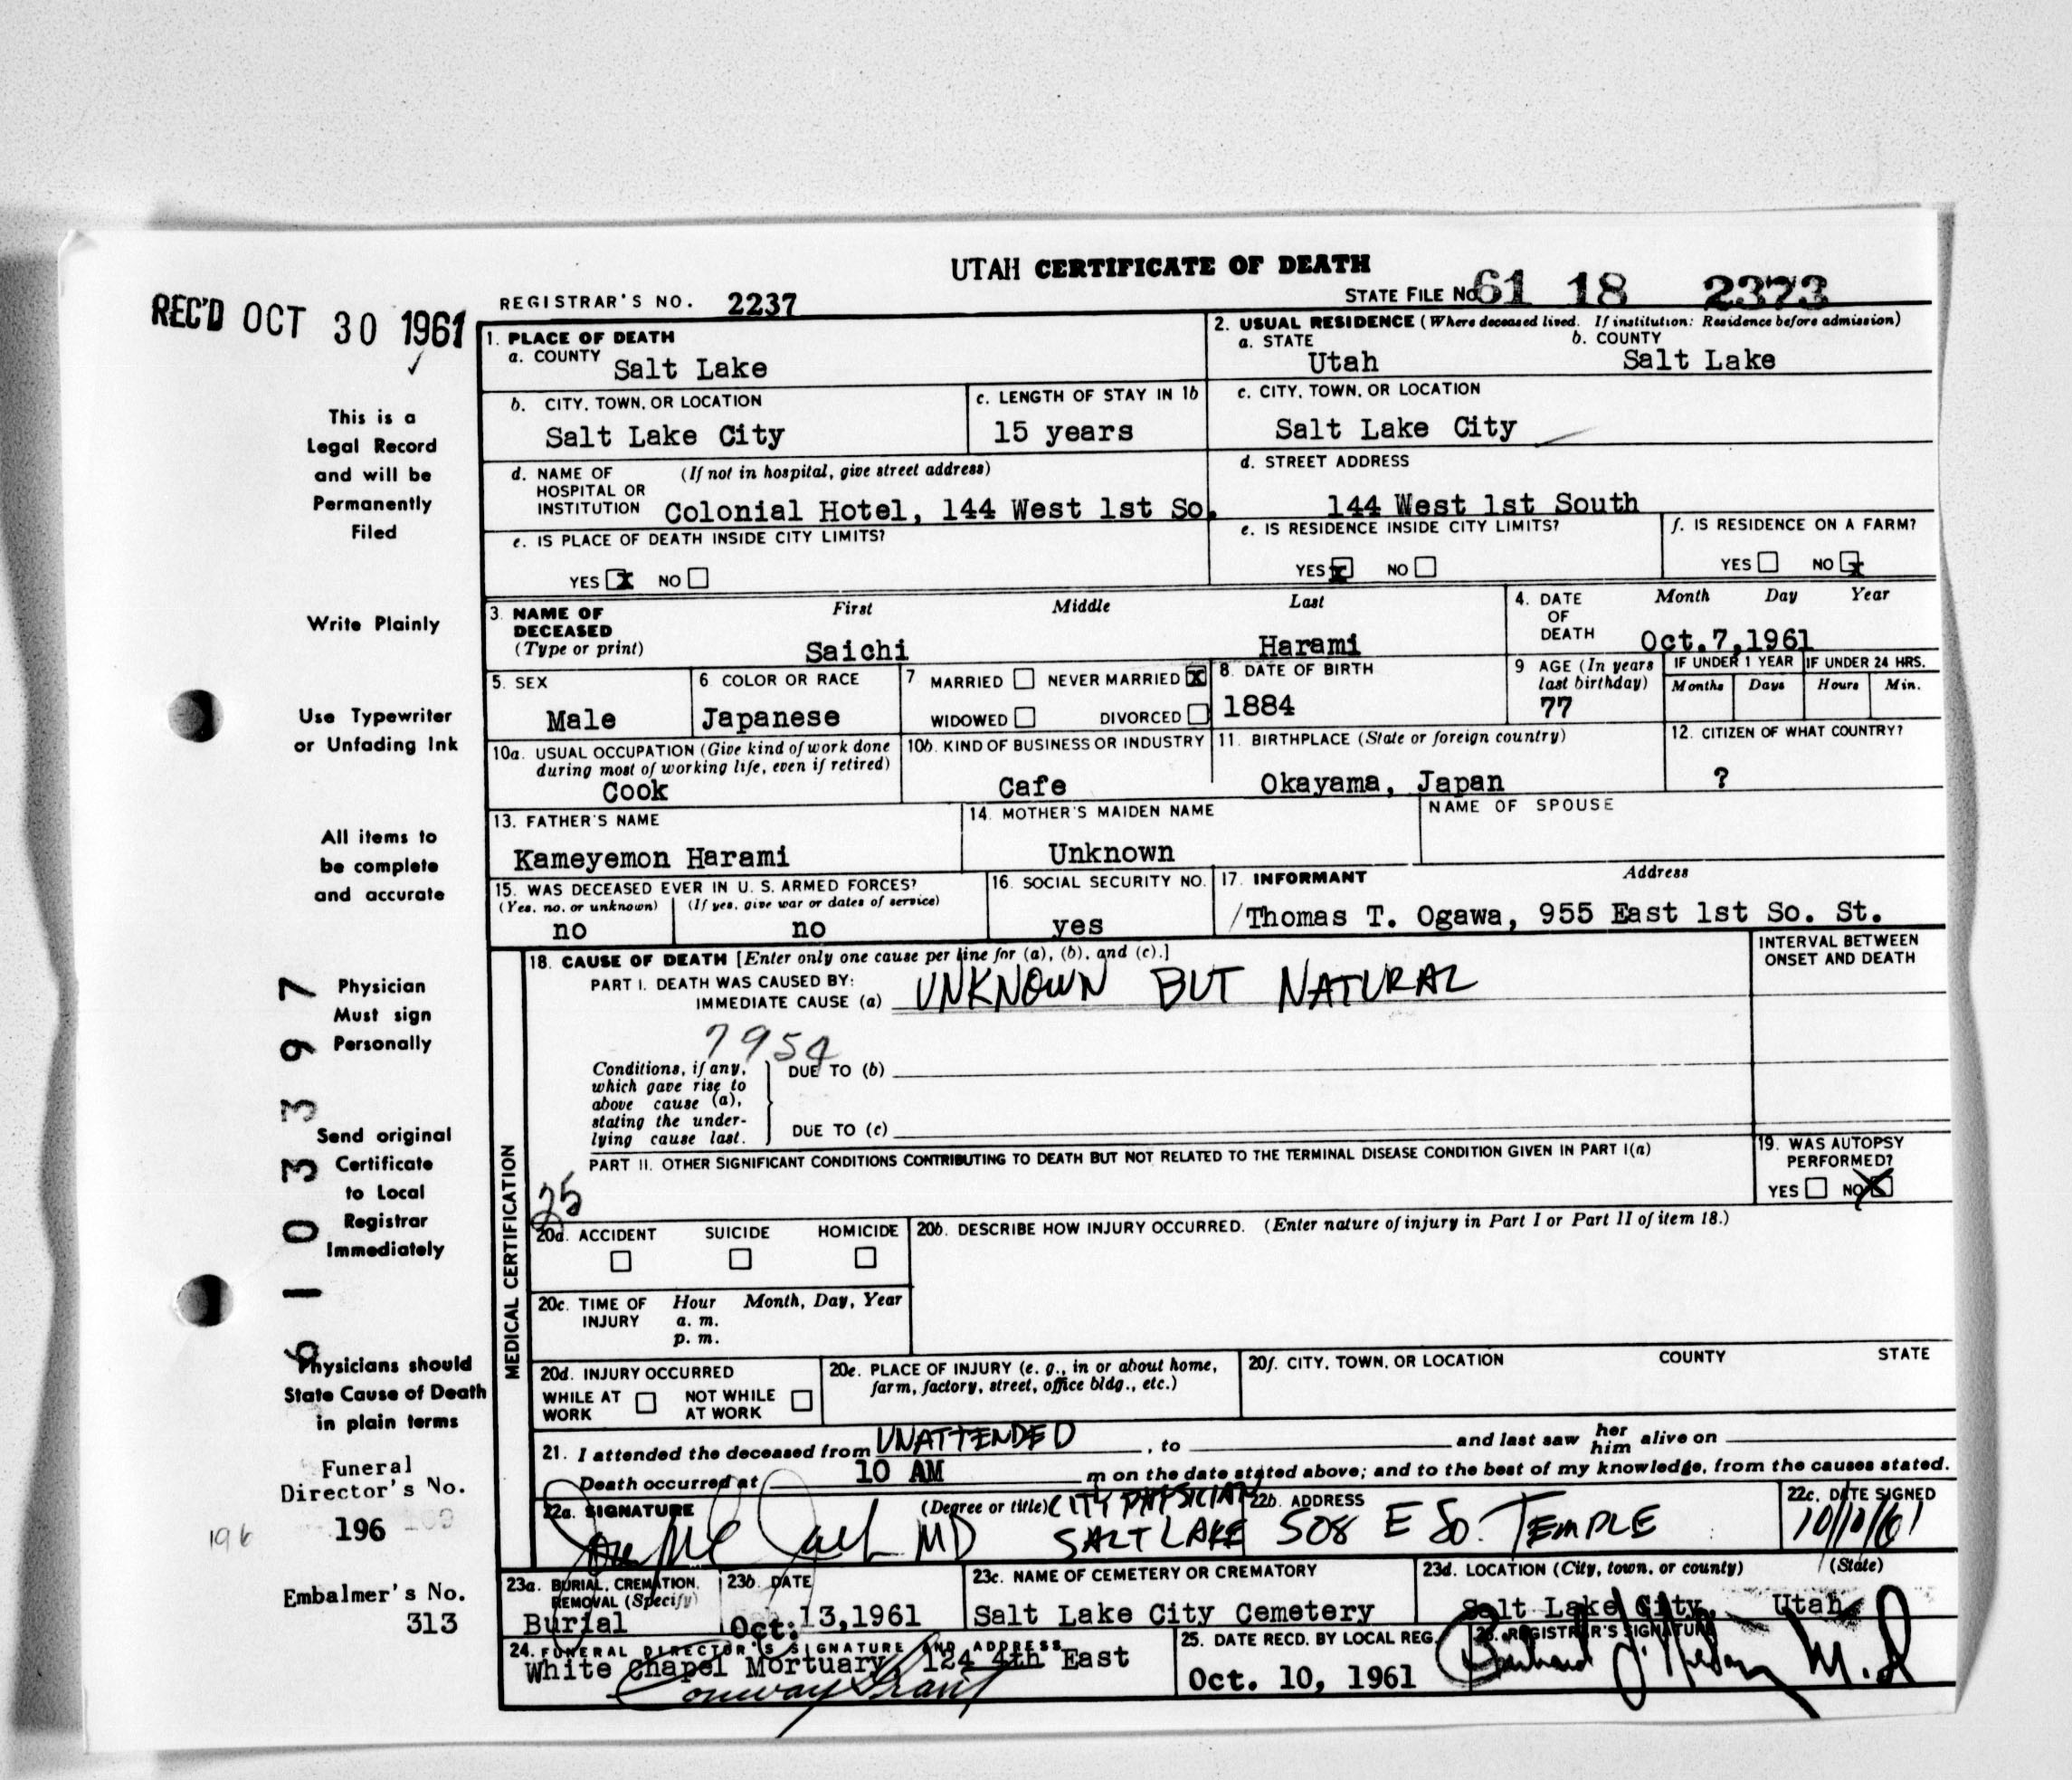 UTAH CERTIFICATE OF DEATH
REC'D OCT 30 1961
REGISTRAR'S NO. 2237
STATE FILE No 61 18 2373
1. PLACE OF DEATH
a. COUNTY Salt Lake
2. USUAL RESIDENCE (Where deceased lived. If institution: Residence before admission)
a. STATE Utah
b. COUNTY Salt Lake
b. CITY, TOWN, OR LOCATION
Salt Lake City
c. LENGTH OF STAY IN 1b
15 years
c. CITY, TOWN, OR LOCATION
Salt Lake City
d. NAME OF HOSPITAL OR INSTITUTION (If not in hospital, give street address)
Colonial Hotel, 144 West 1st So.
d. STREET ADDRESS
144 West 1st South
e. IS PLACE OF DEATH INSIDE CITY LIMITS?
YES x NO
e. IS RESIDENCE INSIDE CITY LIMITS?
YES x NO
f. IS RESIDENCE ON A FARM?
YES NO x
3. NAME OF DECEASED (Type or print)
First Middle Last
Saichi Harami
4. DATE OF DEATH
Month Day Year
Oct.7,1961
5. SEX
Male
6 COLOR OR RACE
Japanese
7 MARRIED NEVER MARRIED x
WIDOWED DIVORCED
8. DATE OF BIRTH
1884
9 AGE (In years last birthday)
77
IF UNDER 1 YEAR
Months Days
IF UNDER 24 HRS.
Hours Min.
10a. USUAL OCCUPATION (Give kind of work done during most of working life, even if retired)
Cook
10b. KIND OF BUSINESS OR INDUSTRY
Cafe
11. BIRTHPLACE (State or foreign country)
Okayama, Japan
12. CITIZEN OF WHAT COUNTRY?
?
13. FATHER'S NAME
Kameyemon Harami
14. MOTHER'S MAIDEN NAME
Unknown
NAME OF SPOUSE
15. WAS DECEASED EVER IN U. S. ARMED FORCES?
(Yes, no, or unknown) (If yes, give war or dates of service)
no no
16. SOCIAL SECURITY NO.
yes
17. INFORMANT Address
Thomas T. Ogawa, 955 East 1st So. St.
18. CAUSE OF DEATH [Enter only one cause per line for (a), (b), and (c).]
PART I. DEATH WAS CAUSED BY:
IMMEDIATE CAUSE (a) UNKNOWN BUT NATURAL
INTERVAL BETWEEN ONSET AND DEATH
Conditions, if any, which gave rise to above cause (a), stating the underlying cause last.
DUE TO (b)
DUE TO (c)
PART II. OTHER SIGNIFICANT CONDITIONS CONTRIBUTING TO DEATH BUT NOT RELATED TO THE TERMINAL DISEASE CONDITION GIVEN IN PART I(a)
19. WAS AUTOPSY PERFORMED?
YES NO X
20a. ACCIDENT SUICIDE HOMICIDE
20b. DESCRIBE HOW INJURY OCCURRED. (Enter nature of injury in Part I or Part II of item 18.)
20c. TIME OF INJURY
Hour Month, Day, Year
a. m.
p. m.
20d. INJURY OCCURRED
WHILE AT WORK NOT WHILE AT WORK
20e. PLACE OF INJURY (e. g., in or about home, farm, factory, street, office bldg., etc.)
20f. CITY, TOWN, OR LOCATION COUNTY STATE
MEDICAL CERTIFICATION
21. I attended the deceased from UNATTENDED , to and last saw her him alive on
Death occurred at 10 AM m on the date stated above; and to the best of my knowledge, from the causes stated.
22a. SIGNATURE (Degree or title)
MD
CITY PHYSICIAN
SALT LAKE
22b. ADDRESS
508 E SO. TEMPLE
22c. DATE SIGNED
10/10/61
23a. BURIAL, CREMATION, REMOVAL (Specify)
Burial
23b. DATE
Oct. 13,1961
23c. NAME OF CEMETERY OR CREMATORY
Salt Lake City Cemetery
23d. LOCATION (City, town, or county) (State)
Salt Lake City, Utah
24. FUNERAL DIRECTOR'S SIGNATURE AND ADDRESS
White Chapel Mortuary, 124 4th East
25. DATE RECD. BY LOCAL REG.
Oct. 10, 1961
26. REGISTRAR'S SIGNATURE
M.D
This is a
Legal Record
and will be
Permanently
Filed
Write Plainly
Use Typewriter
or Unfading Ink
All items to
be complete
and accurate
Physician
Must sign
Personally
Send original
Certificate
to Local
Registrar
Immediately
Physicians should
State Cause of Death
in plain terms
Funeral
Director's No.
196
196
Embalmer's No.
313